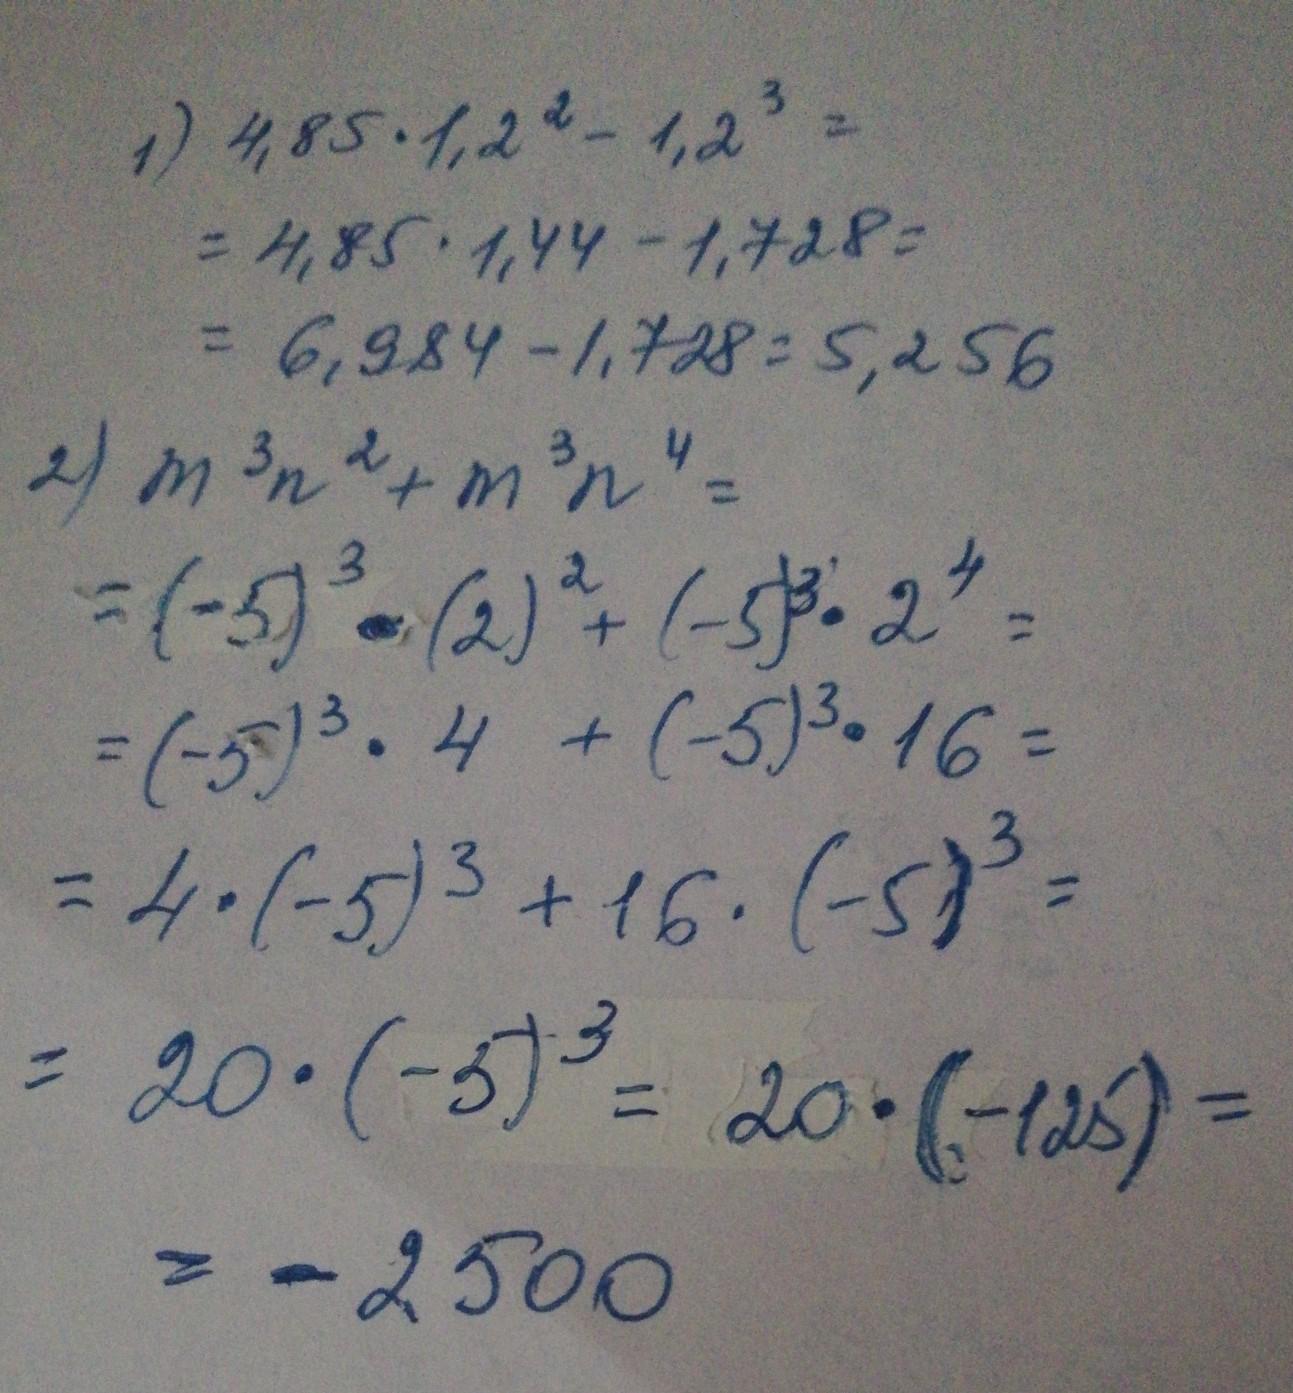 1) 4,85·1,2² - 1,2³ =
= 4,85·1,44 - 1,728 =
= 6,984 - 1,728 = 5,256
2) m³n² + m³n⁴ =
= (-5)³·(2)² + (-5)³·2⁴ =
= (-5)³·4 + (-5)³·16 =
= 4·(-5)³ + 16·(-5)³ =
= 20·(-5)³ = 20·(-125) =
= -2500